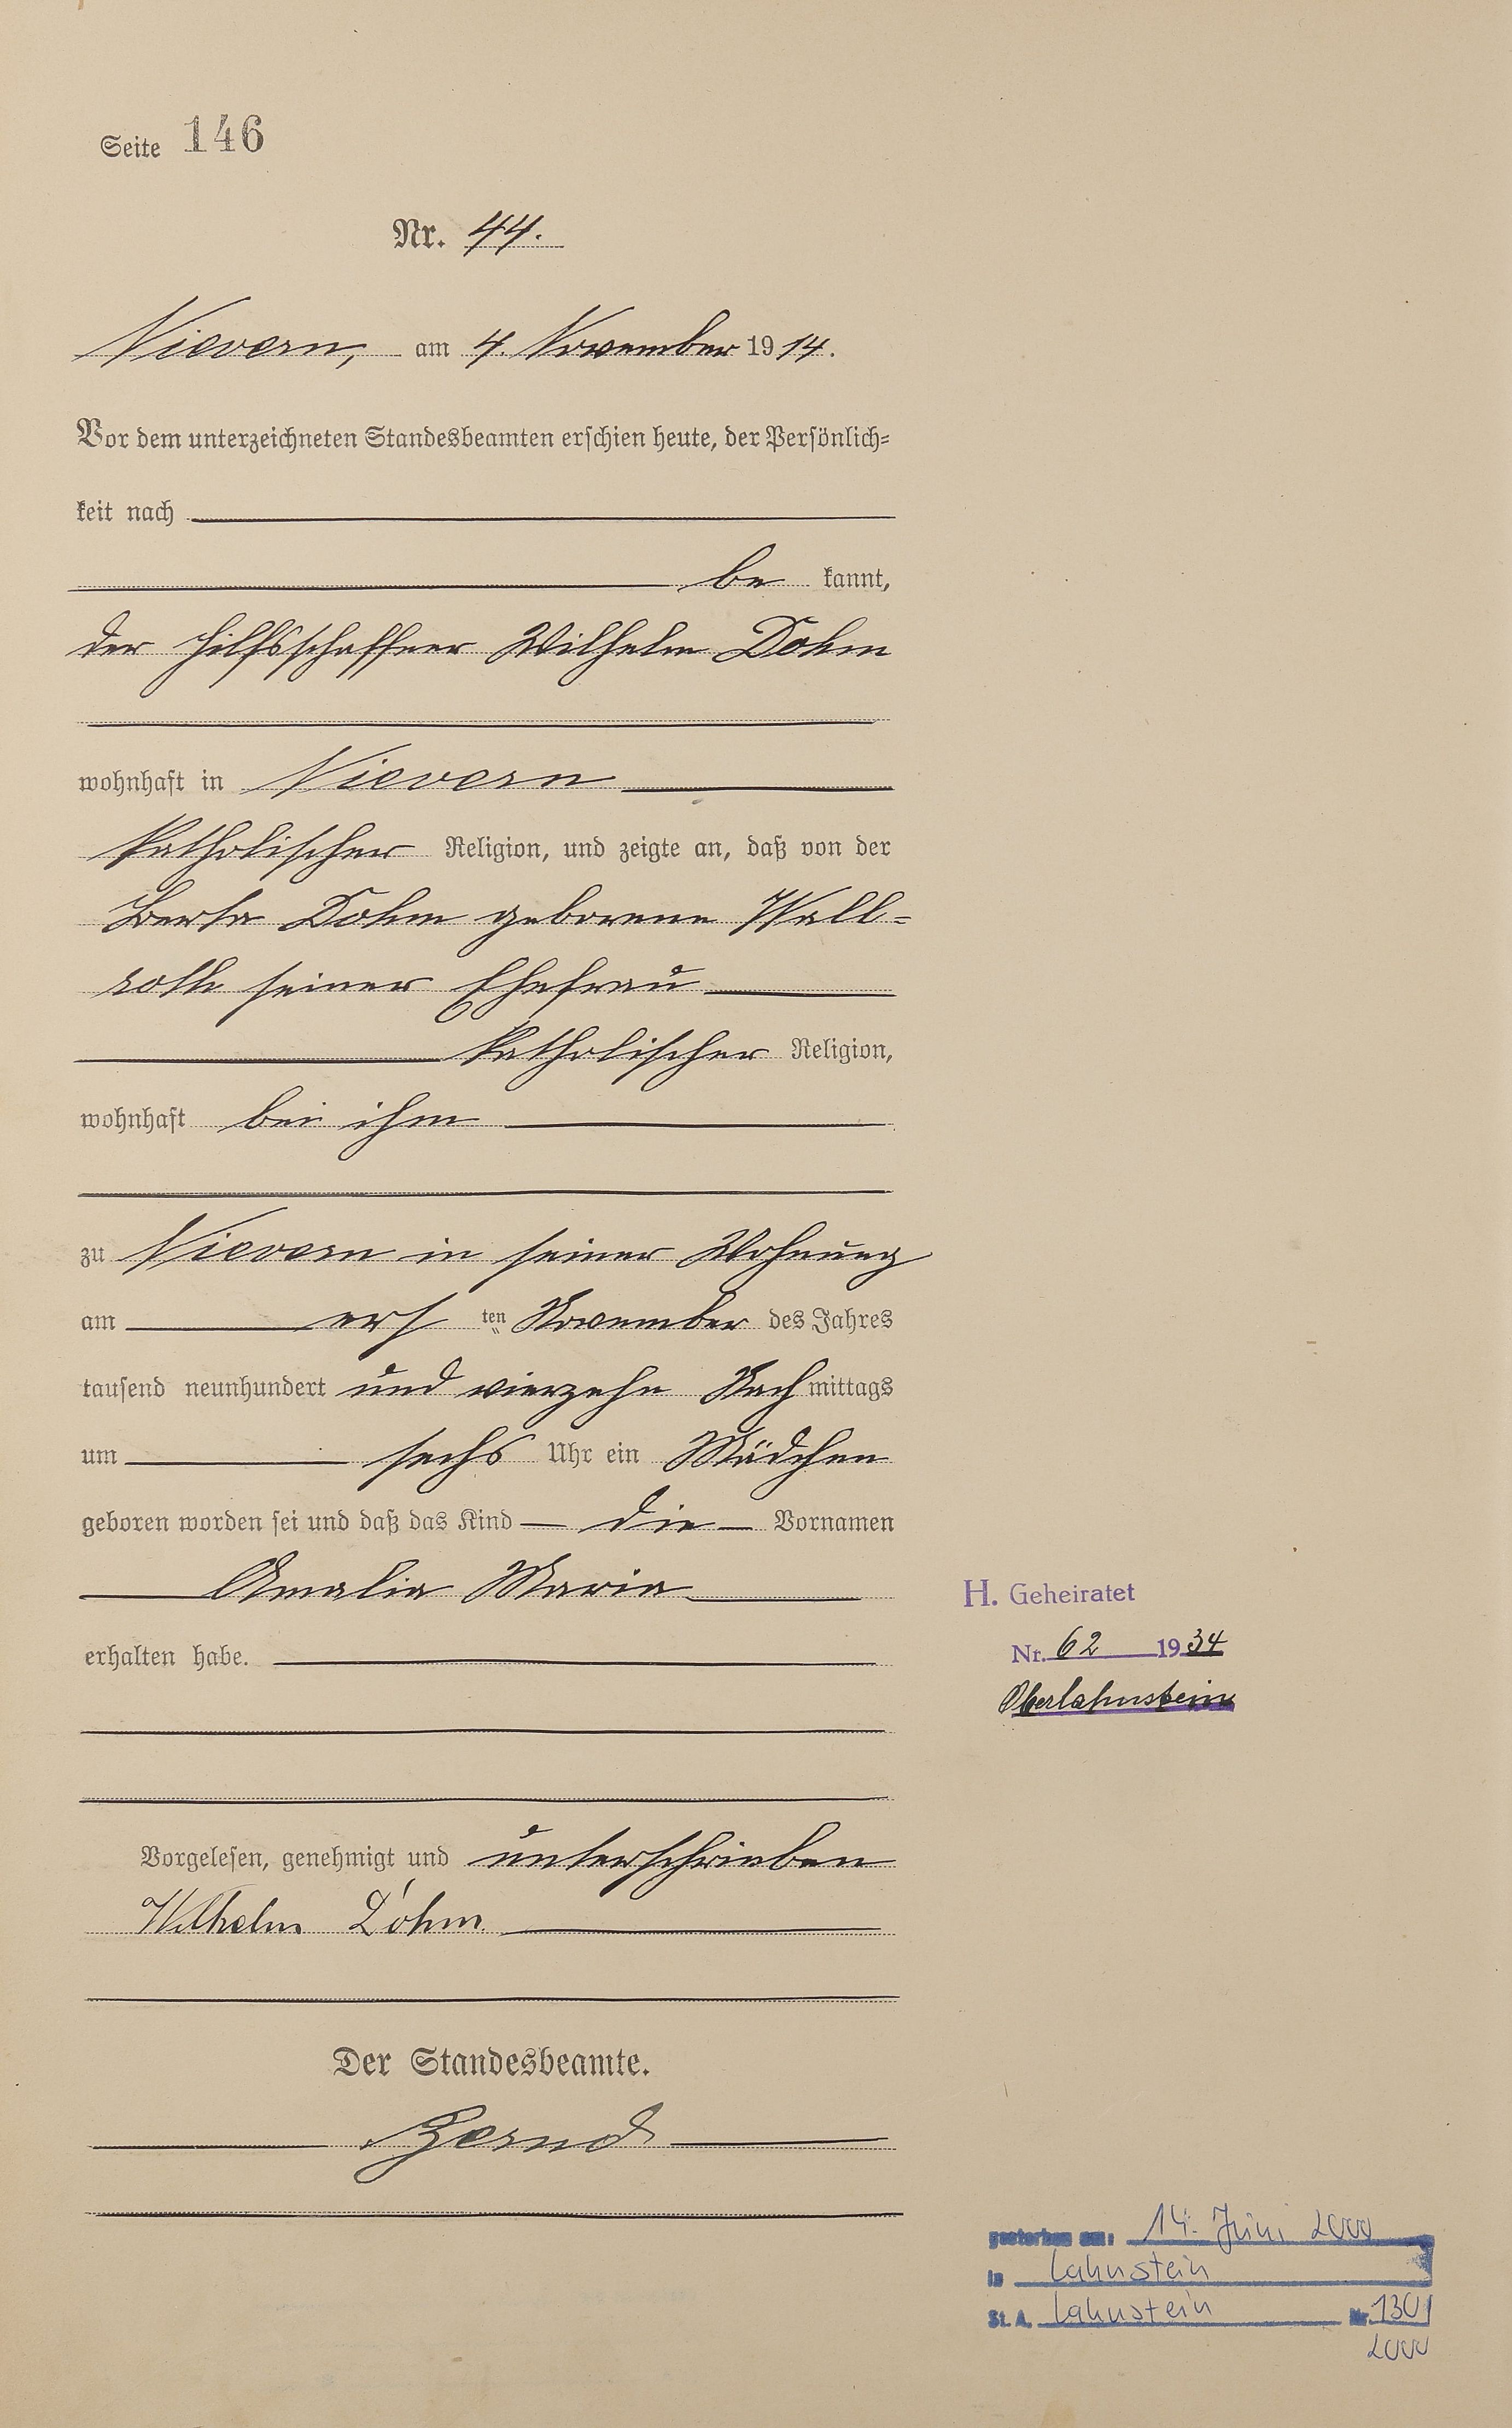 Seite 146
Nr. 44.
Nievern, am 4. November 1914.
Vor dem unterzeichneten Standesbeamten erschien heute, der Persönlich=
keit nach
be kannt,
der Hilfsschaffner Wilhelm Dohm
wohnhaft in Nievern
katholischer Religion, und zeigte an, daß von der
Berta Dohm geborene Wall=
roth seiner Ehefrau
katholischer Religion,
wohnhaft bei ihm
zu Nievern in seiner Wohnung
am ers ten November des Jahres
tausend neunhundert und vierzehn Nach mittags
um sechs Uhr ein Mädchen
geboren worden sei und daß das Kind die Vornamen
Amalia Maria
erhalten habe.
H. Geheiratet
Nr. 62 1934
Oberlahnstein
Vorgelesen, genehmigt und unterschrieben
Wilhelm Dohm
Der Standesbeamte.
gestorben am: 14. Juni 2000
in Lahnstein
St. A. Lahnstein Nr. 130/
2000